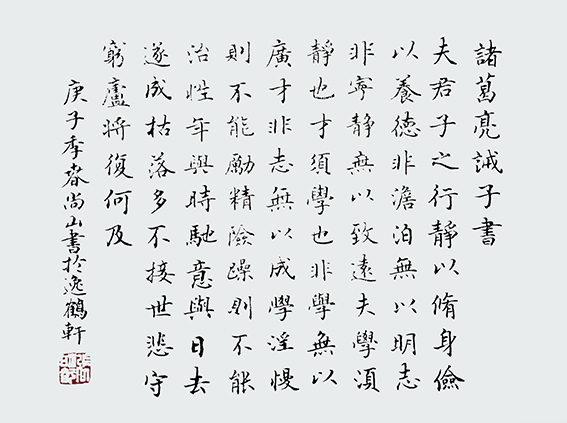 諸葛亮誡子書
夫君子之行靜以脩身儉
以養德非澹泊無以明志
非寧靜無以致遠夫學須
靜也才須學也非學無以
廣才非志無以成學淫慢
則不能勵精險躁則不能
治性年與時馳意與日去
遂成枯落多不接世悲守
窮廬將復何及
庚子季春尚山書於逸鶴軒